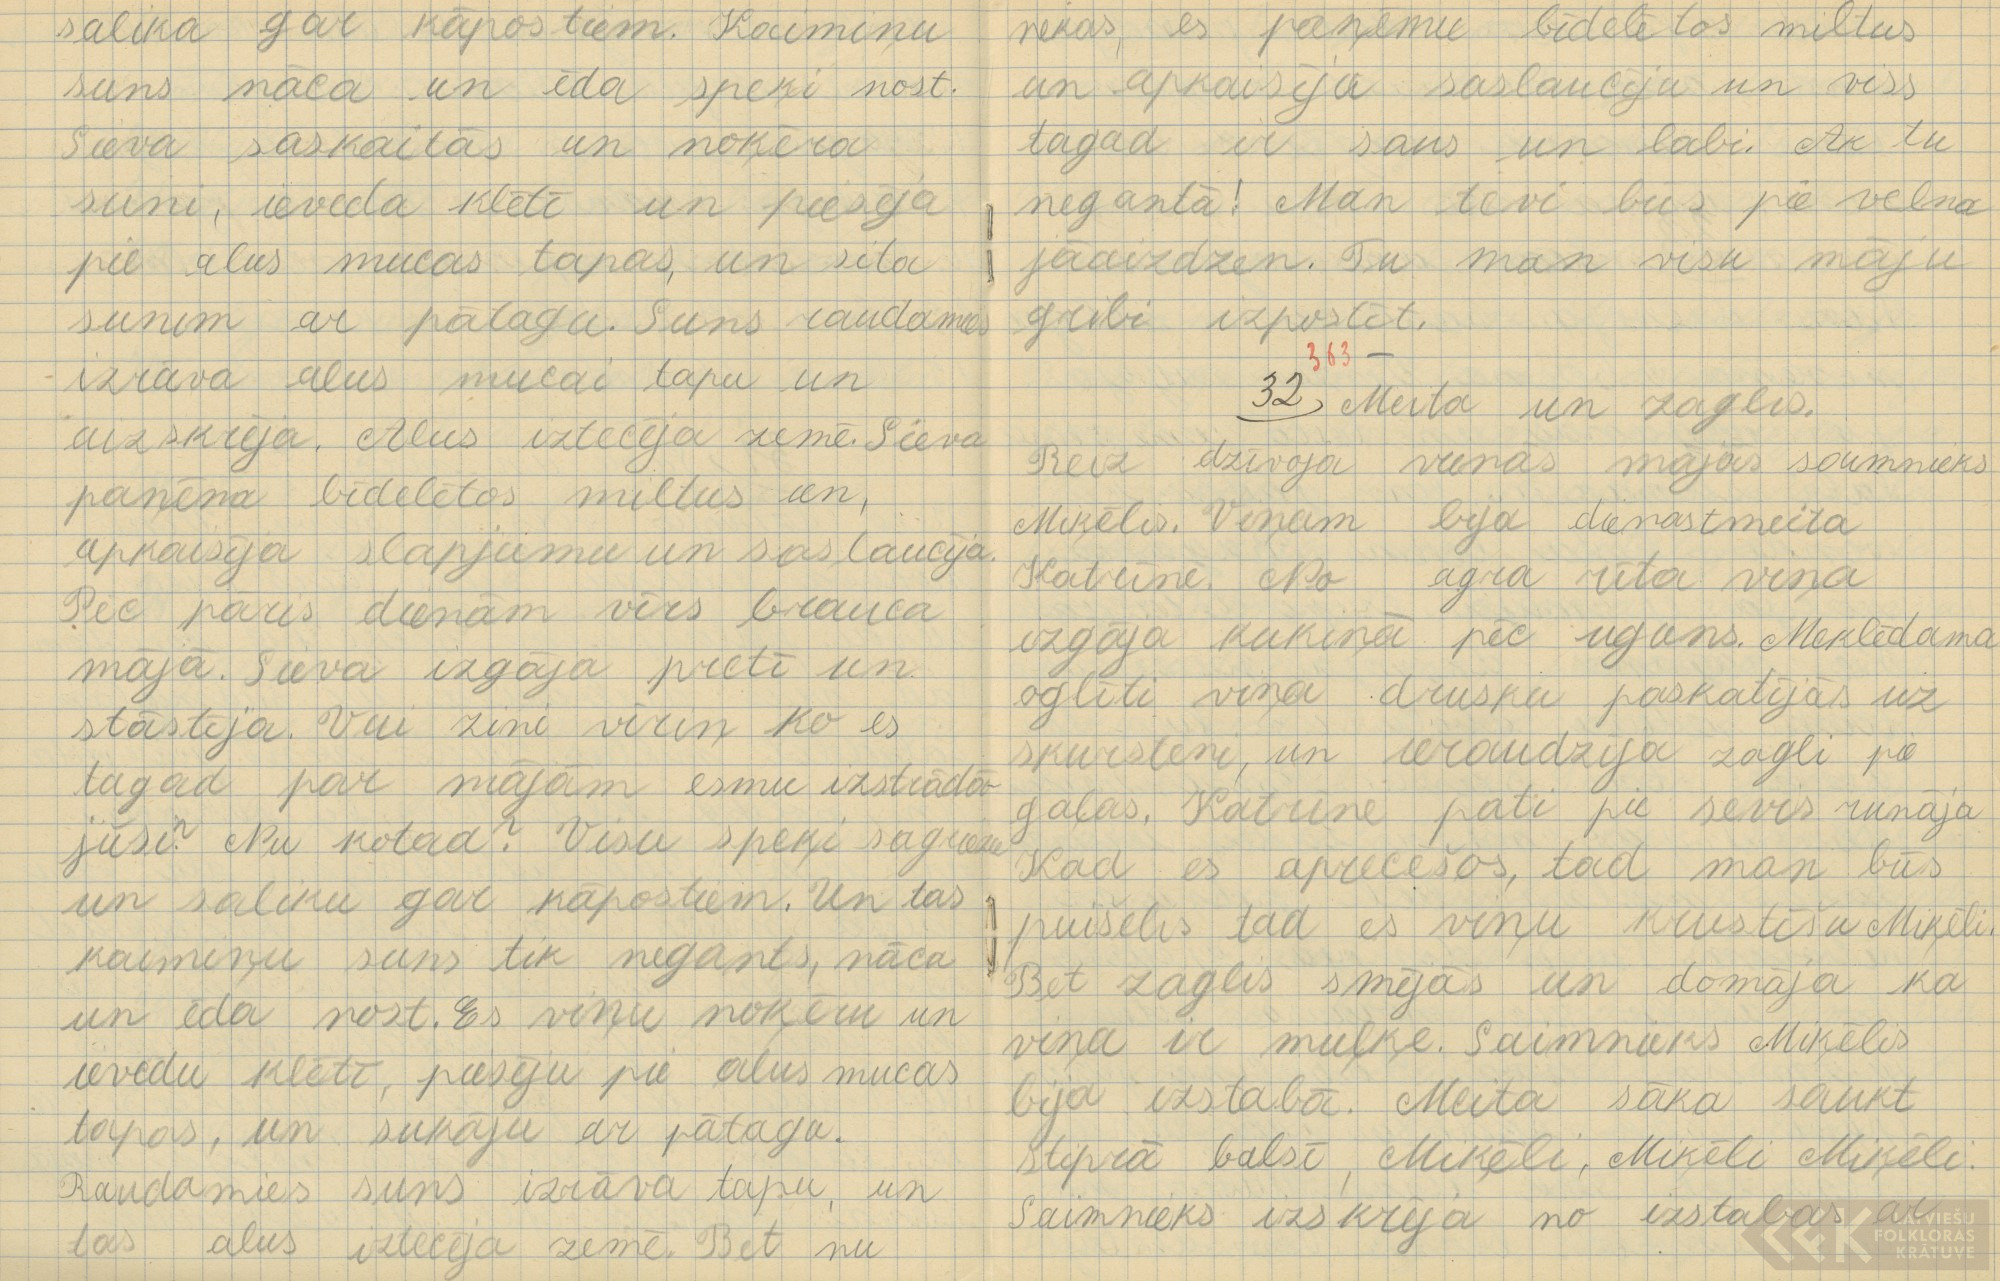 salika gar kāpostiem. Kaimiņu
suns nāca un ēda speķi nost.
Sieva saskaitās un noķēra
suni, ieveda klētī un piesēja
pie alus mucas tapas, un sita
sunim ar pātagu. Suns raudamies
izrāva alus mucai tapu un
aizskrēja. Alus iztecēja zemē. Sieva
paņēma bīdelētos miltus un,
apkaisīja slapjumu un saslaucīja.
Pēc pāris dienām vīrs brauca
mājā. Sieva izgāja pretī un
stāstīja. Vai zini vīriņ ko es
tagad par mājām esmu izstrādā-
jusi? Nu kotad? Visu speķi sagriezu
un saliku gar kāpostiem. Un tas
kaimiņu suns tik negants, nāca
un ēda nost. Es viņu noķēru un
ievedu klētī, piesēju pie alus mucas
tapas, un sukāju ar pātagu.
Raudamies suns izrāva tapu, un
tas alus iztecēja zemē. Bet nu
nekas, es paņēmu bīdelētos miltus
un apkaisīju saslaucīju un viss
tagad ir saus un labi. Ak tu
negantā! Man tevi būs pie velna
jāaizdzen. Tu man visu māju
gribi izpostīt.
363 —
32 Meita un zaglis.
Reiz dzīvoja vienās mājās saimnieks
Miķēlis. Viņam bija dienastmeita
Katrīne. No agra rīta viņa
izgāja kukiņā pēc uguns. Meklēdama
oglīti viņa drusku paskatījās uz
skursteni, un ieraudzīja zagli pie
gaļas. Katrīne pati pie sevis runāja
Kad es aprecēšos, tad man būs
puišelis tad es viņu kristīšu Miķēli.
Bet zaglis smējās un domāja ka
viņa ir muļķe. Saimnieks Miķēlis
bija izstabā. Meita sāka saukt
stiprā balsī, Miķēli, Miķēli Miķēli.
Saimnieks izskrēja no izstabas ar
LATVIEŠU
FOLKLORAS
KRĀTUVE